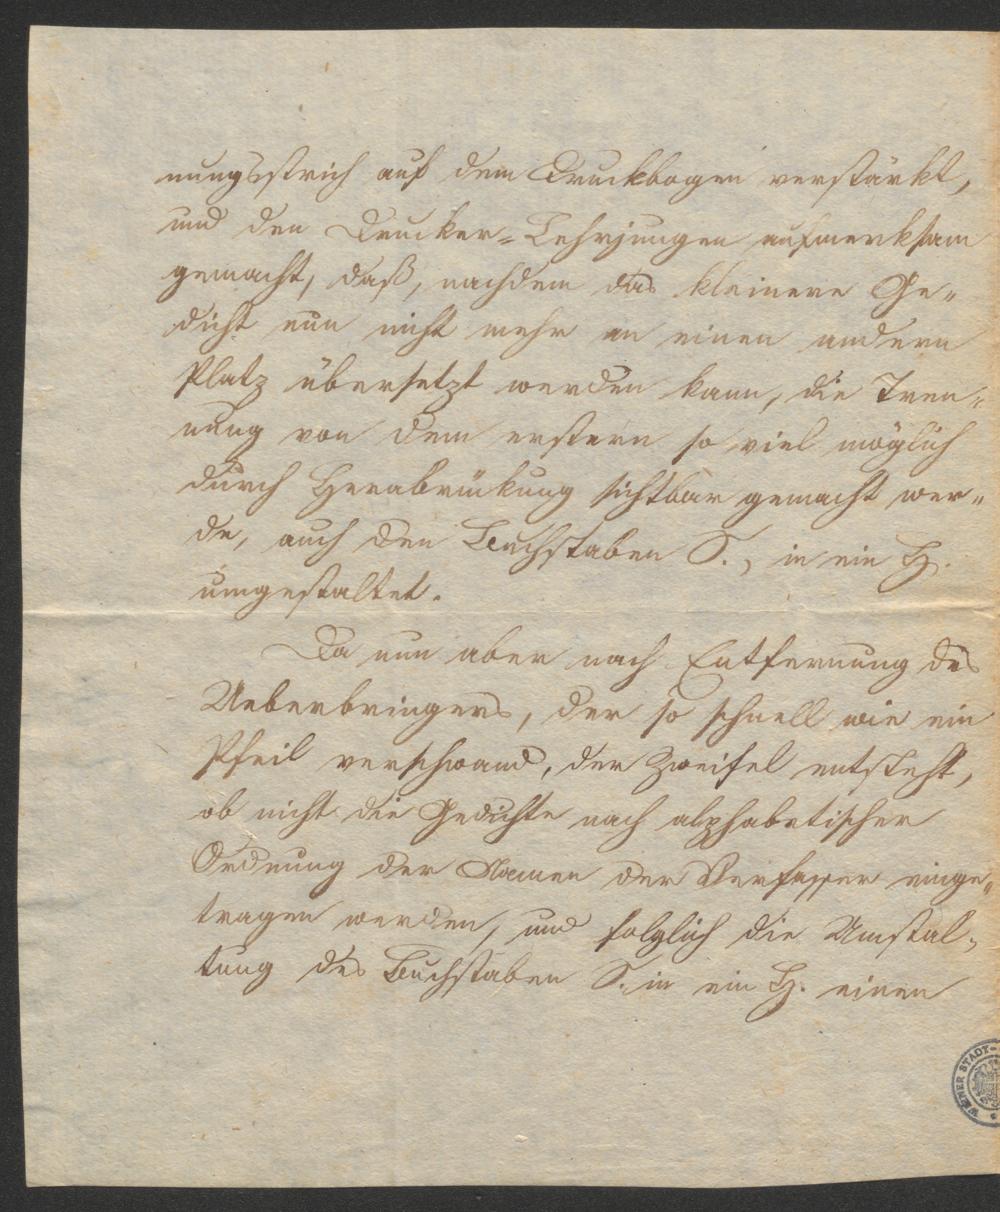 nungsstrich auf dem Druckbogen verstärkt,
und den Drucker-Lehrjungen aufmerksam
gemacht, daß, nachdem das kleinere Ge-
dicht nun nicht mehr an einen andern
Platz übersetzt werden kann, die Tren-
nung von dem erstern so viel möglich
durch Herabrückung sichtbar gemacht wer-
de, auch den Buchstaben S., in ein H.
umgestaltet.
Da nun aber nach Entfernung des
Ueberbringers, der so schnell wie ein
Pfeil verschwand, der Zweifel entsteht,
ob nicht die Gedichte nach alphabetischer
Ordnung der Namen der Verfasser einge-
tragen werden, und folglich die Umstal-
tung des Buchstaben S. in ein H. einen
WIENER STADT-